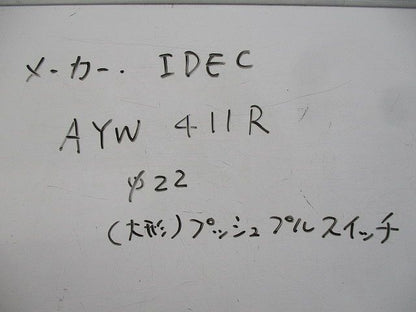 メーカー. IDEC
AYW 411R
φ22
(大形)プッシュプルスイッチ